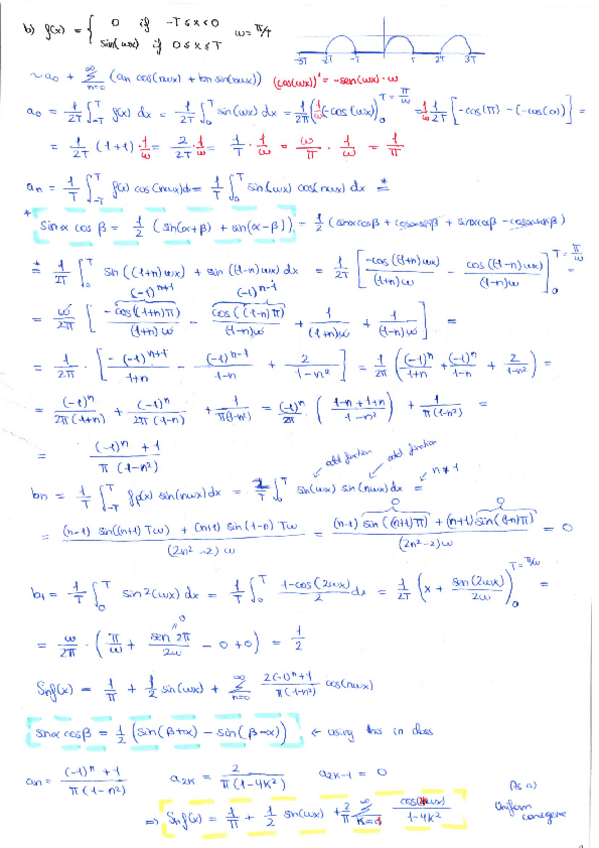 b) f(x) = { 0 if -T ≤ x < 0
sin(ωx) if 0 ≤ x ≤ T ω = π/T
-3T -2T -T T 2T 3T
~ a₀ + Σ_{n=0}^{∞} (an cos(nωx) + bn sin(nωx)) (cos(ωx))' = -sen(ωx)·ω
a₀ = 1/2T ∫_{-T}^{T} f(x) dx = 1/2T ∫_0^T sin(ωx) dx = 1/2T (1/ω (-cos(ωx))_0^{T = π/ω} = 1/ω 1/2T [-cos(π) - (-cos(0))] =
= 1/2T (1+1) · 1/ω = 2/2T · 1/ω = 1/T · 1/ω = ω/π · 1/ω = 1/π
an = 1/T ∫_{-T}^{T} f(x) cos(nωx)dx = 1/T ∫_0^T sin(ωx) cos(nωx) dx =*
* sinα cosβ = 1/2 (sin(α+β) + sin(α-β)) = 1/2 (sinαcosβ + cosαsinβ + sinαcosβ - cosαsinβ)
=* 1/2T ∫_0^T sin((1+n)ωx) + sin((1-n)ωx) dx = 1/2T [-cos((1+n)ωx)/(1+n)ω - cos((1-n)ωx)/(1-n)ω]_0^{T = π/ω} =
(-1)^{n+1} (-1)^{n-1}
= ω/2π [-cos((1+n)π)/(1+n)ω - cos((1-n)π)/(1-n)ω + 1/(1+n)ω + 1/(1-n)ω] =
= 1/2π · [-(-1)^{n+1}/1+n - (-1)^{n-1}/1-n + 2/1-n²] = 1/2π ((-1)^n/1+n + (-1)^n/1-n + 2/1-n²) =
= (-1)^n/2π(1+n) + (-1)^n/2π(1-n) + 1/π(1-n²) = (-1)^n/2π · (1-n+1+n/1-n²) + 1/π(1-n²) =
= (-1)^n + 1/π(1-n²)
odd function odd function
bn = 1/T ∫_{-T}^{T} f(x) sin(nωx)dx = 1/T ∫_0^T sin(ωx) sin(nωx)dx = n ≠ 1
0 0
= (n-1) sin((n+1)Tω) + (n+1) sin(1-n)Tω/(2n²-2)ω = (n-1) sin((n+1)π) + (n+1) sin((1-n)π)/(2n²-2)ω = 0
b₁ = 1/T ∫_0^T sin²(ωx) dx = 1/T ∫_0^T 1-cos(2ωx)/2 dx = 1/2T (x + sen(2ωx)/2ω)_0^{T = π/ω} =
= ω/2π · (π/ω + sen 2π/2ω - 0 + 0) = 1/2
Snf(x) = 1/π + 1/2 sin(ωx) + Σ_{n=0}^{∞} 2(-1)^n+1/π(1-n²) cos(nωx)
sinα cosβ = 1/2 (sin(β+α) - sin(β-α)) ← using this in class
an = (-1)^n + 1/π(1-n²) a₂ₖ = 2/π(1-4k²) a₂ₖ₋₁ = 0
As a)
⇒ Snf(x) = 1/π + 1/2 sin(ωx) + 2/π Σ_{k=1}^{∞} cos(2kωx)/1-4k² Uniform
convergence